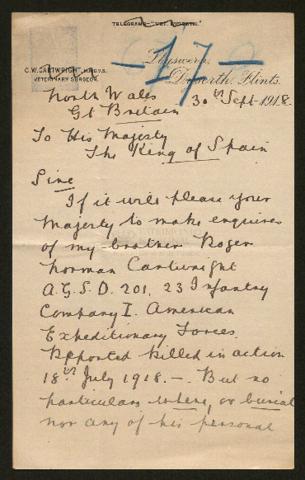 TELEGRAMS
-17-
C.W. CARTWRIGHT, M.R.C.V.S.
VETERINARY SURGEON.
North Wales
Gt Britain
30th Sept 1918.
To His Majesty
The King of Spain
Sire
If it will please your
Majesty to make enquires
of my brother Roger
Norman Cartwright
A.G.S.D. 201. 23 Infantry
Company I. American
Expeditionary Forces.
Reported killed in action
18th July 1918 -. But no
particulars where, or burial
nor any of his personal